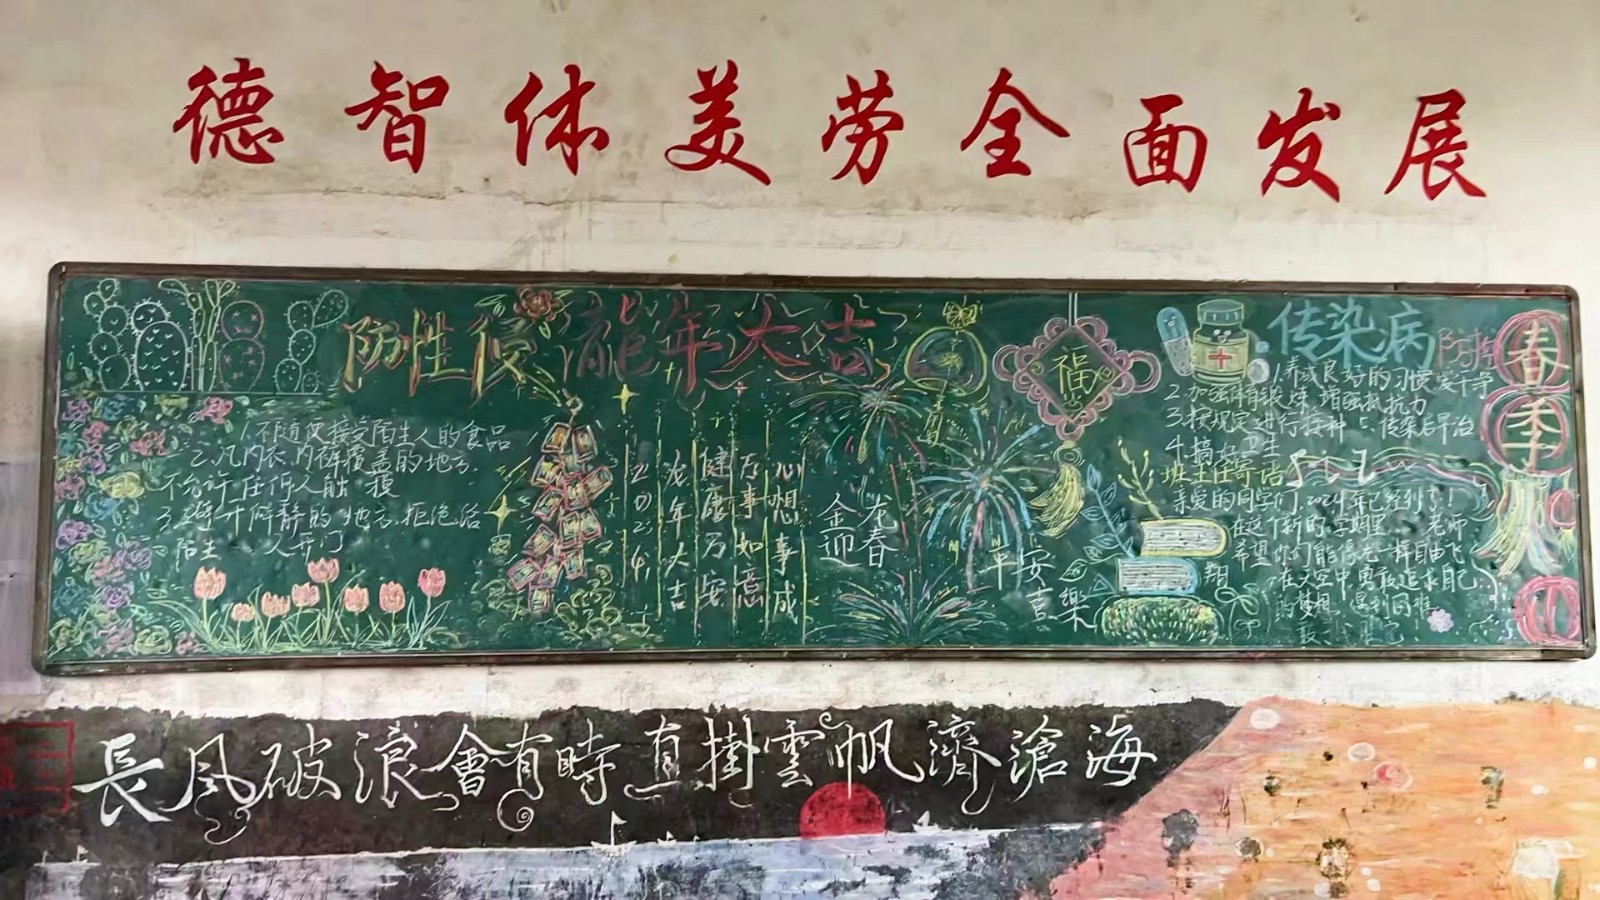 德智体美劳全面发展
防性侵
龙年大吉
1.不随便接受陌生人的食品
2.凡内衣、内裤覆盖的地方
不允许任何人触摸
3.避开僻静的地方.拒绝给
陌生人开门
2024
龙年大吉
健康万安
万事如意
心想事成
龙春
金迎
福
平安喜樂
传染病
防控
春季
1.养成良好的习惯
2.加强体育锻炼 增强抵抗力
3.按规定进行接种
4.搞好卫生
班主任寄语
亲爱的同学们,2024年已经到了!
在这个新的学期里,老师
希望你们能像 一样自由飞
翔在天空中,勇敢追求自己
的梦想,遇到困难
長风破浪會有時直掛雲帆濟滄海